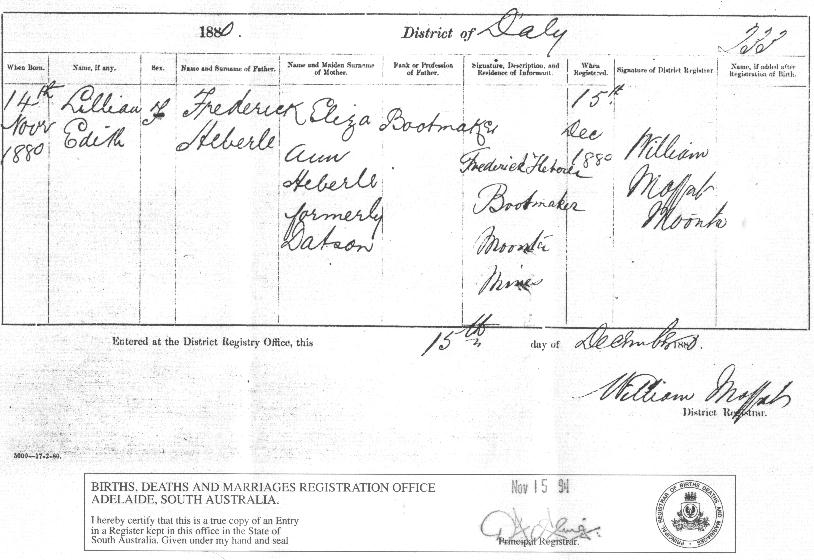 1880. District of Daly 222
When Born. Name, if any. Sex. Name and Surname of Father. Name and Maiden Surname of Mother. Rank or Profession of Father. Signature, Description, and Residence of Informant. When Registered. Signature of District Registrar Name, if added after Registration of Birth.
14th Novr 1880
Lillian Edith
F
Frederick Heberle
Eliza Ann Heberle formerly Datson
Bootmaker
Frederick Heberle
Bootmaker
Moonta
Mines
15th Dec 1880
William
Moffat
Moonta
Entered at the District Registry Office, this 15th day of December 1880.
William Moffat
District Registrar.
5000—17-2-80.
BIRTHS, DEATHS AND MARRIAGES REGISTRATION OFFICE
ADELAIDE, SOUTH AUSTRALIA.
Nov 15 94
I hereby certify that this is a true copy of an Entry
in a Register kept in this office in the State of
South Australia. Given under my hand and seal
Principal Registrar.
PRINCIPAL REGISTRAR OF BIRTHS DEATHS AND MARRIAGES